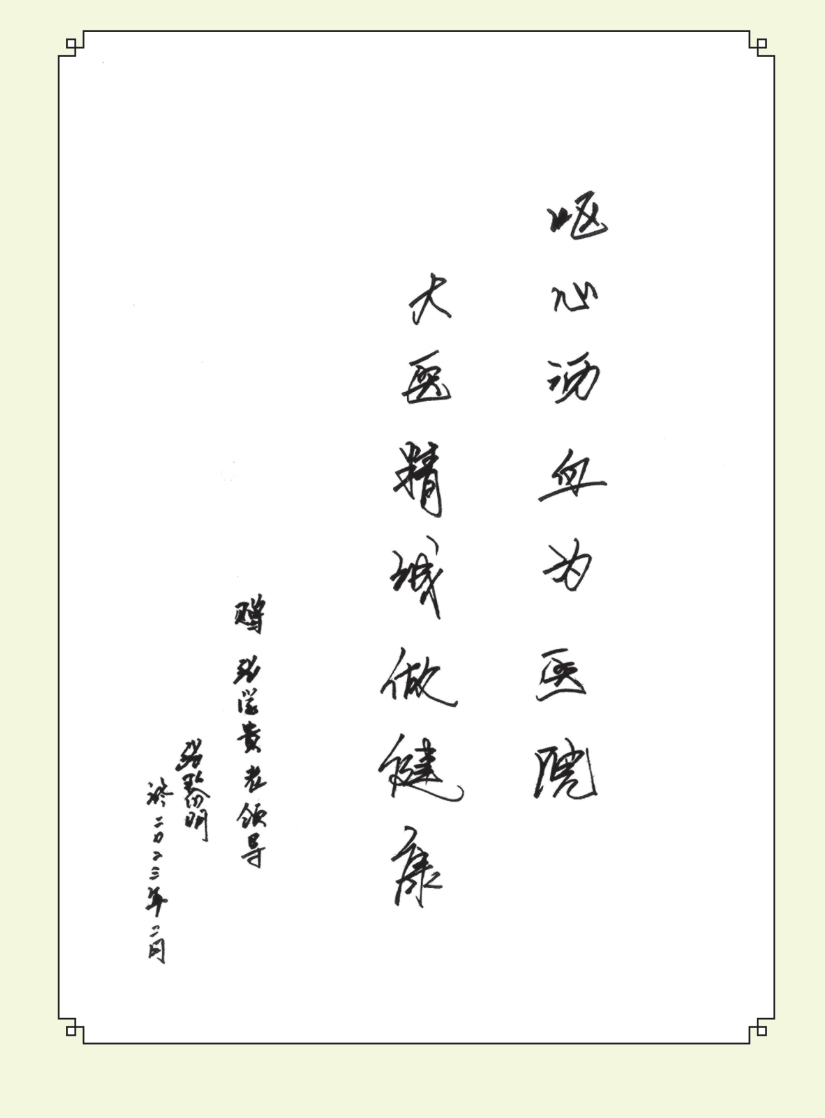 呕心沥血为医院
大医精诚做健康
赠 张学贵老领导
明
於二〇二三年二月